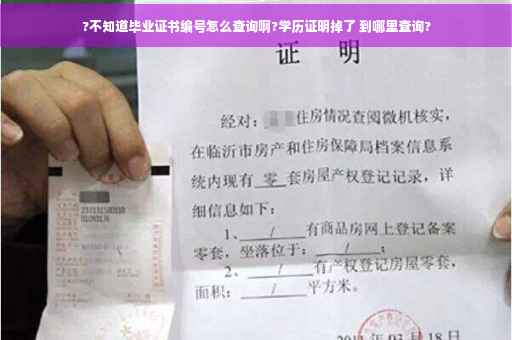 ?不知道毕业证书编号怎么查询啊?学历证明掉了 到哪里查询?
证 明
经对：住房情况查阅微机核实，
在临沂市房产和住房保障局档案信息系
统内现有 零 套房屋产权登记记录，详
细信息如下：
1、 / 有商品房网上登记备案
零套，坐落位于： / ；
2、 / 有产权登记房屋零套，
面积： / 平方米。
03月18日